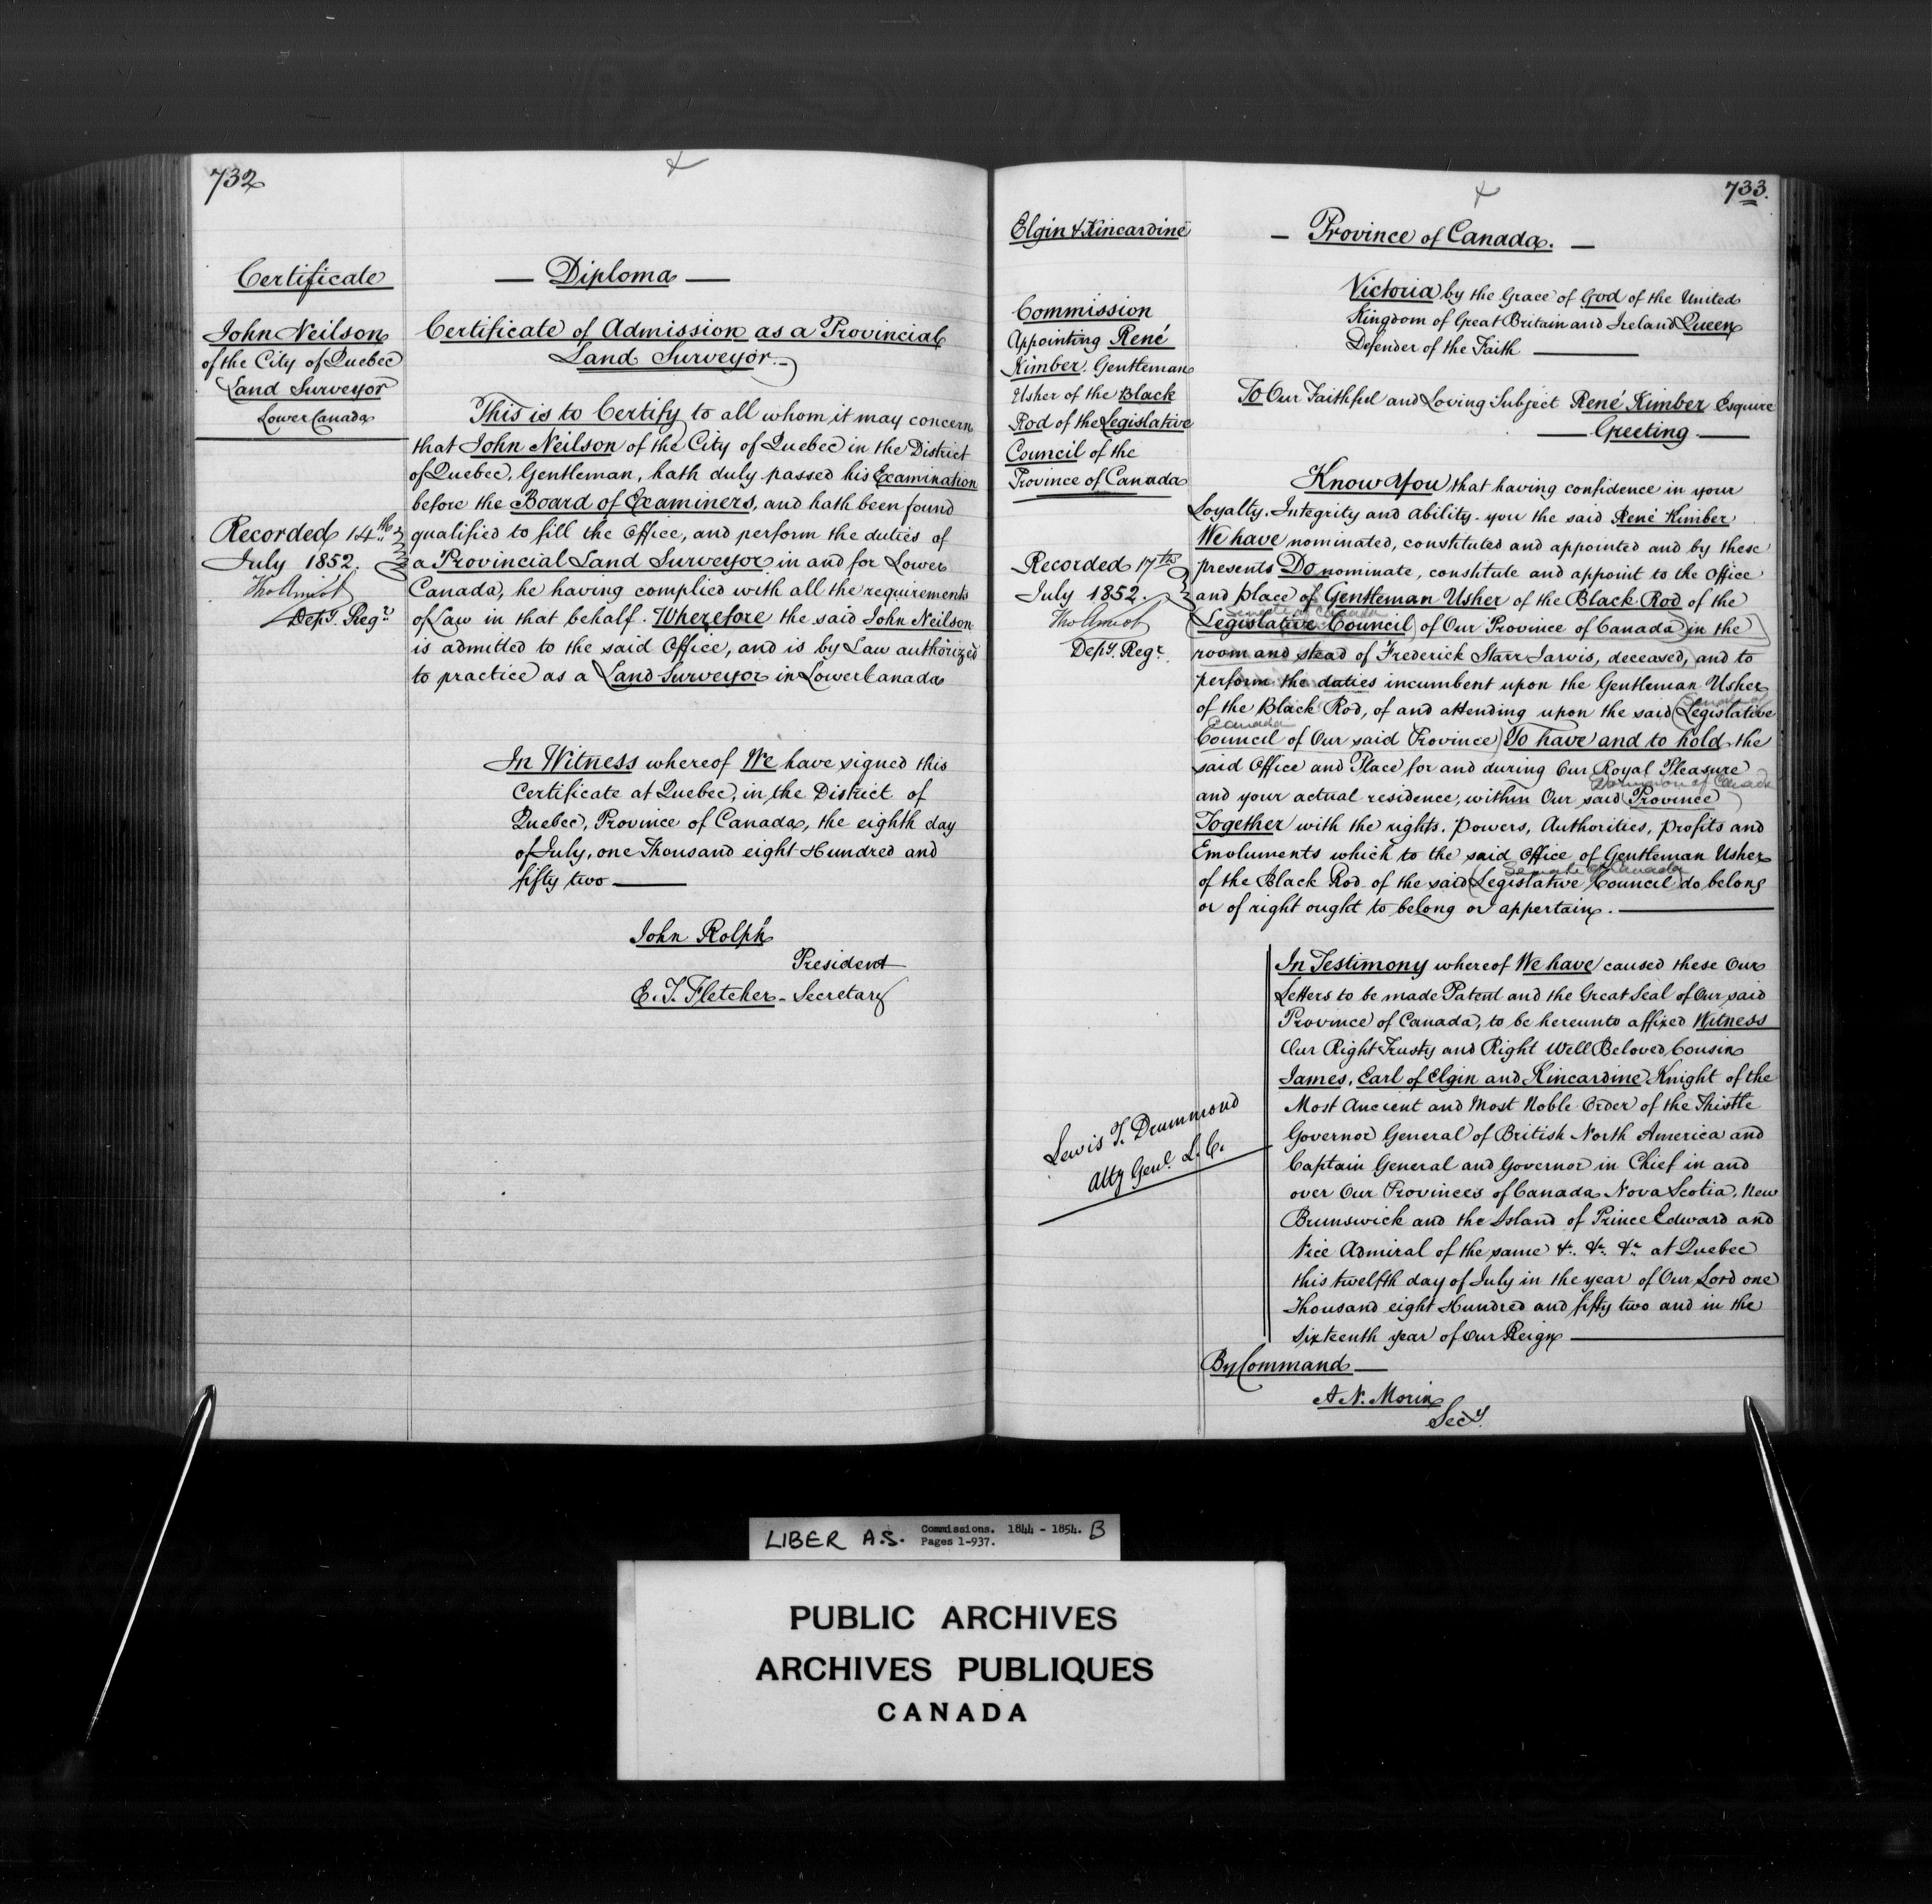 732
Certificate
John Neilson
of the City of Quebec
Land Surveyor
Lower Canada
Recorded 14th
July 1852.
Tho Amiot
Depy. Regr
— Diploma —
Certificate of Admission as a Provincial
Land Surveyor.
This is to Certify to all whom it may concern
that John Neilson of the City of Quebec in the District
of Quebec, Gentleman, hath duly passed his Examination
before the Board of Examiners, and hath been found
qualified to fill the Office, and perform the duties of
a Provincial Land Surveyor in and for Lower
Canada, he having complied with all the requirements
of Law in that behalf. Wherefore the said John Neilson
is admitted to the said Office, and is by Law authorized
to practice as a Land Surveyor in Lower Canada
In Witness whereof We have signed this
Certificate at Quebec, in the District of
Quebec, Province of Canada, the eighth day
of July, one Thousand eight Hundred and
fifty two —
John Rolph
President
E. T. Fletcher - Secretary
733.
Elgin & Kincardine
Commission
Appointing René
Kimber. Gentleman
Usher of the Black
Rod of the Legislative
Council of the
Province of Canada
Recorded 17th
July 1852.
Tho Amiot
Depy. Regr.
Lewis T. Drummond
Atty Genl. L. C.
— Province of Canada. —
Victoria by the Grace of God of the United
Kingdom of Great Britain and Ireland Queen
Defender of the Faith —
To Our Faithful and Loving Subject René Kimber Esquire
— Greeting —
Know You that having confidence in your
Loyalty. Integrity and Ability. you the said René Kimber
We have nominated, constituted and appointed and by these
presents Do nominate, constitute and appoint to the Office
and place of Gentleman Usher of the Black Rod of the
Senate of Canada
(Legislative Council of Our Province of Canada) in the
room and stead of Frederick Starr Jarvis, deceased, and to
perform the duties incumbent upon the Gentleman Usher
of the Black Rod, of and attending upon the said (Legislative
Senate of
Canada
Council of Our said Province) To have and to hold the
said Office and Place for and during Our Royal Pleasure
Dominion of Canada
and your actual residence, within Our said (Province)
Together with the rights. Powers, Authorities, Profits and
Emoluments which to the said Office of Gentleman Usher
Senate of Canada
of the Black Rod of the said (Legislative Council) do belong
or of right ought to belong or appertain. —
In Testimony whereof We have caused these Our
Letters to be made Patent and the Great Seal of Our said
Province of Canada, to be hereunto affixed Witness
Our Right Trusty and Right Well Beloved Cousin
James, Earl of Elgin and Kincardine Knight of the
Most Ancient and Most Noble Order of the Thistle
Governor General of British North America and
Captain General and Governor in Chief in and
over Our Provinces of Canada Nova Scotia, New
Brunswick and the Island of Prince Edward and
Vice Admiral of the same &c. &c. &c. at Quebec
this twelfth day of July in the year of Our Lord one
Thousand eight Hundred and fifty two and in the
Sixteenth year of Our Reign —
By Command —
A. N. Morin
Secy.
LIBER A.S. Commissions. 1844 - 1854. B
Pages 1-937.
PUBLIC ARCHIVES
ARCHIVES PUBLIQUES
CANADA